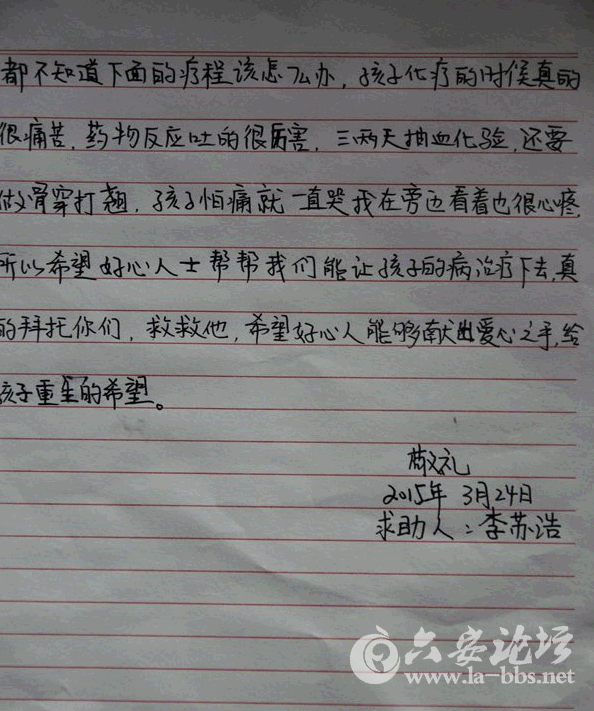 都不知道下面的疗程该怎么办，孩子化疗的时候真的
很痛苦，药物反应吐的很厉害，三两天抽血化验，还要
做骨穿打翘，孩子怕痛就一直哭我在旁边看着也很心疼，
所以希望好心人士帮帮我们能让孩子的病治疗下去，真
的拜托你们，救救他，希望好心人能够献出爱心之手，给
孩子重生的希望。
敬礼
2015年 3月24日
求助人：李苏浩
六安论坛
www.la-bbs.net